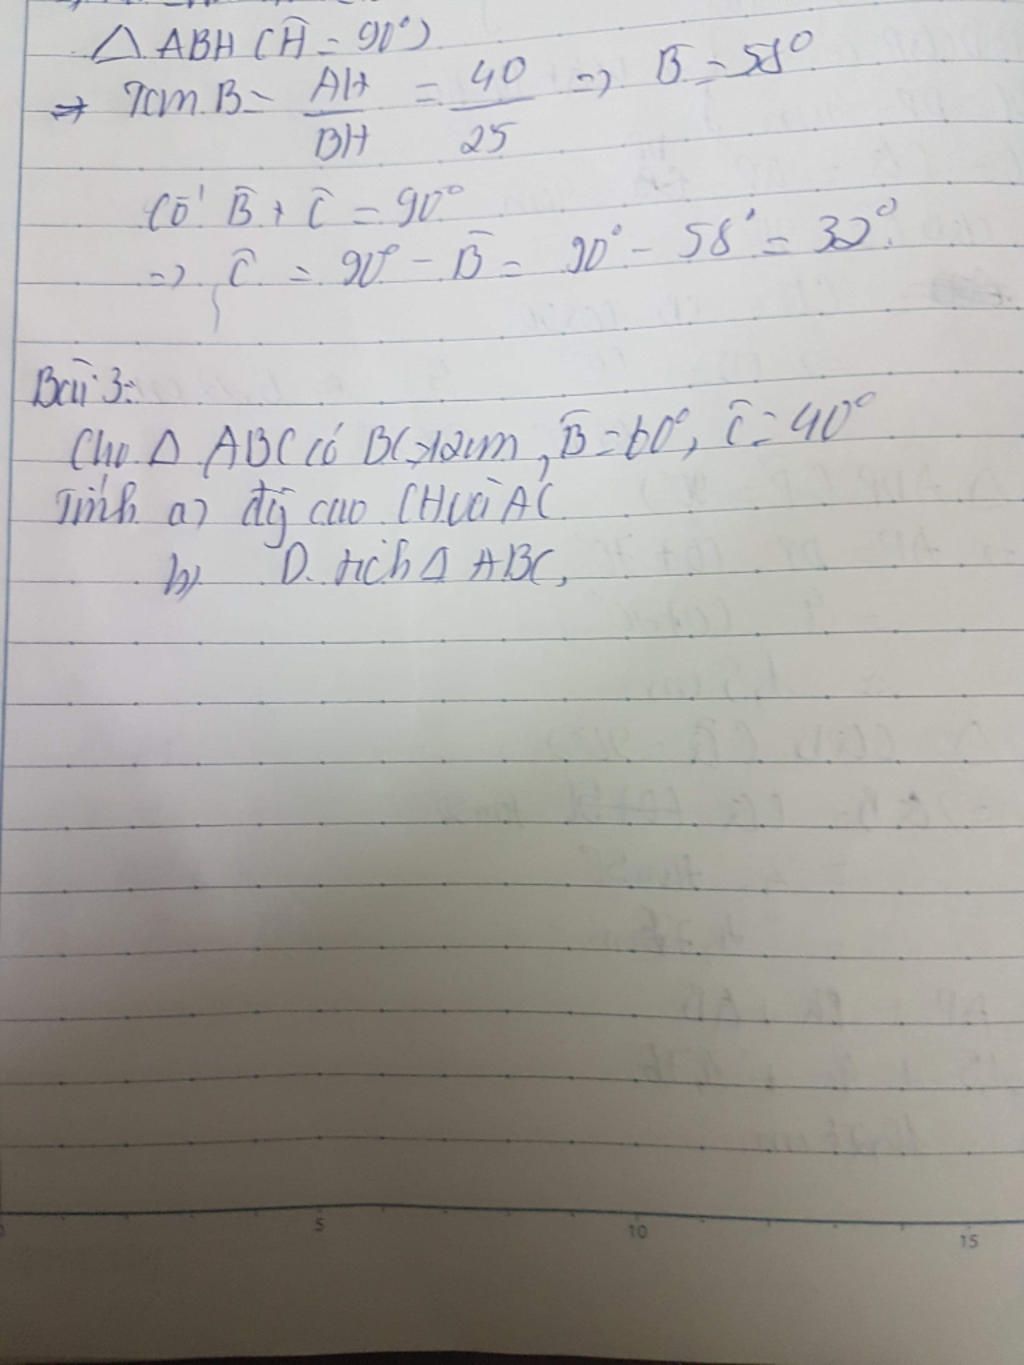 △ ABH (Ĥ = 90°)
=> Tan B = AH/BH = 40/25 => B̂ = 58°
Có B̂ + Ĉ = 90°
=> Ĉ = 90° - B̂ = 90° - 58° = 32°
Bài 3:
Cho △ ABC có BC=12cm, B̂ = 60°, Ĉ = 40°
Tính a) đg cao CH và AC
b) D. tích △ ABC,
5 10 15